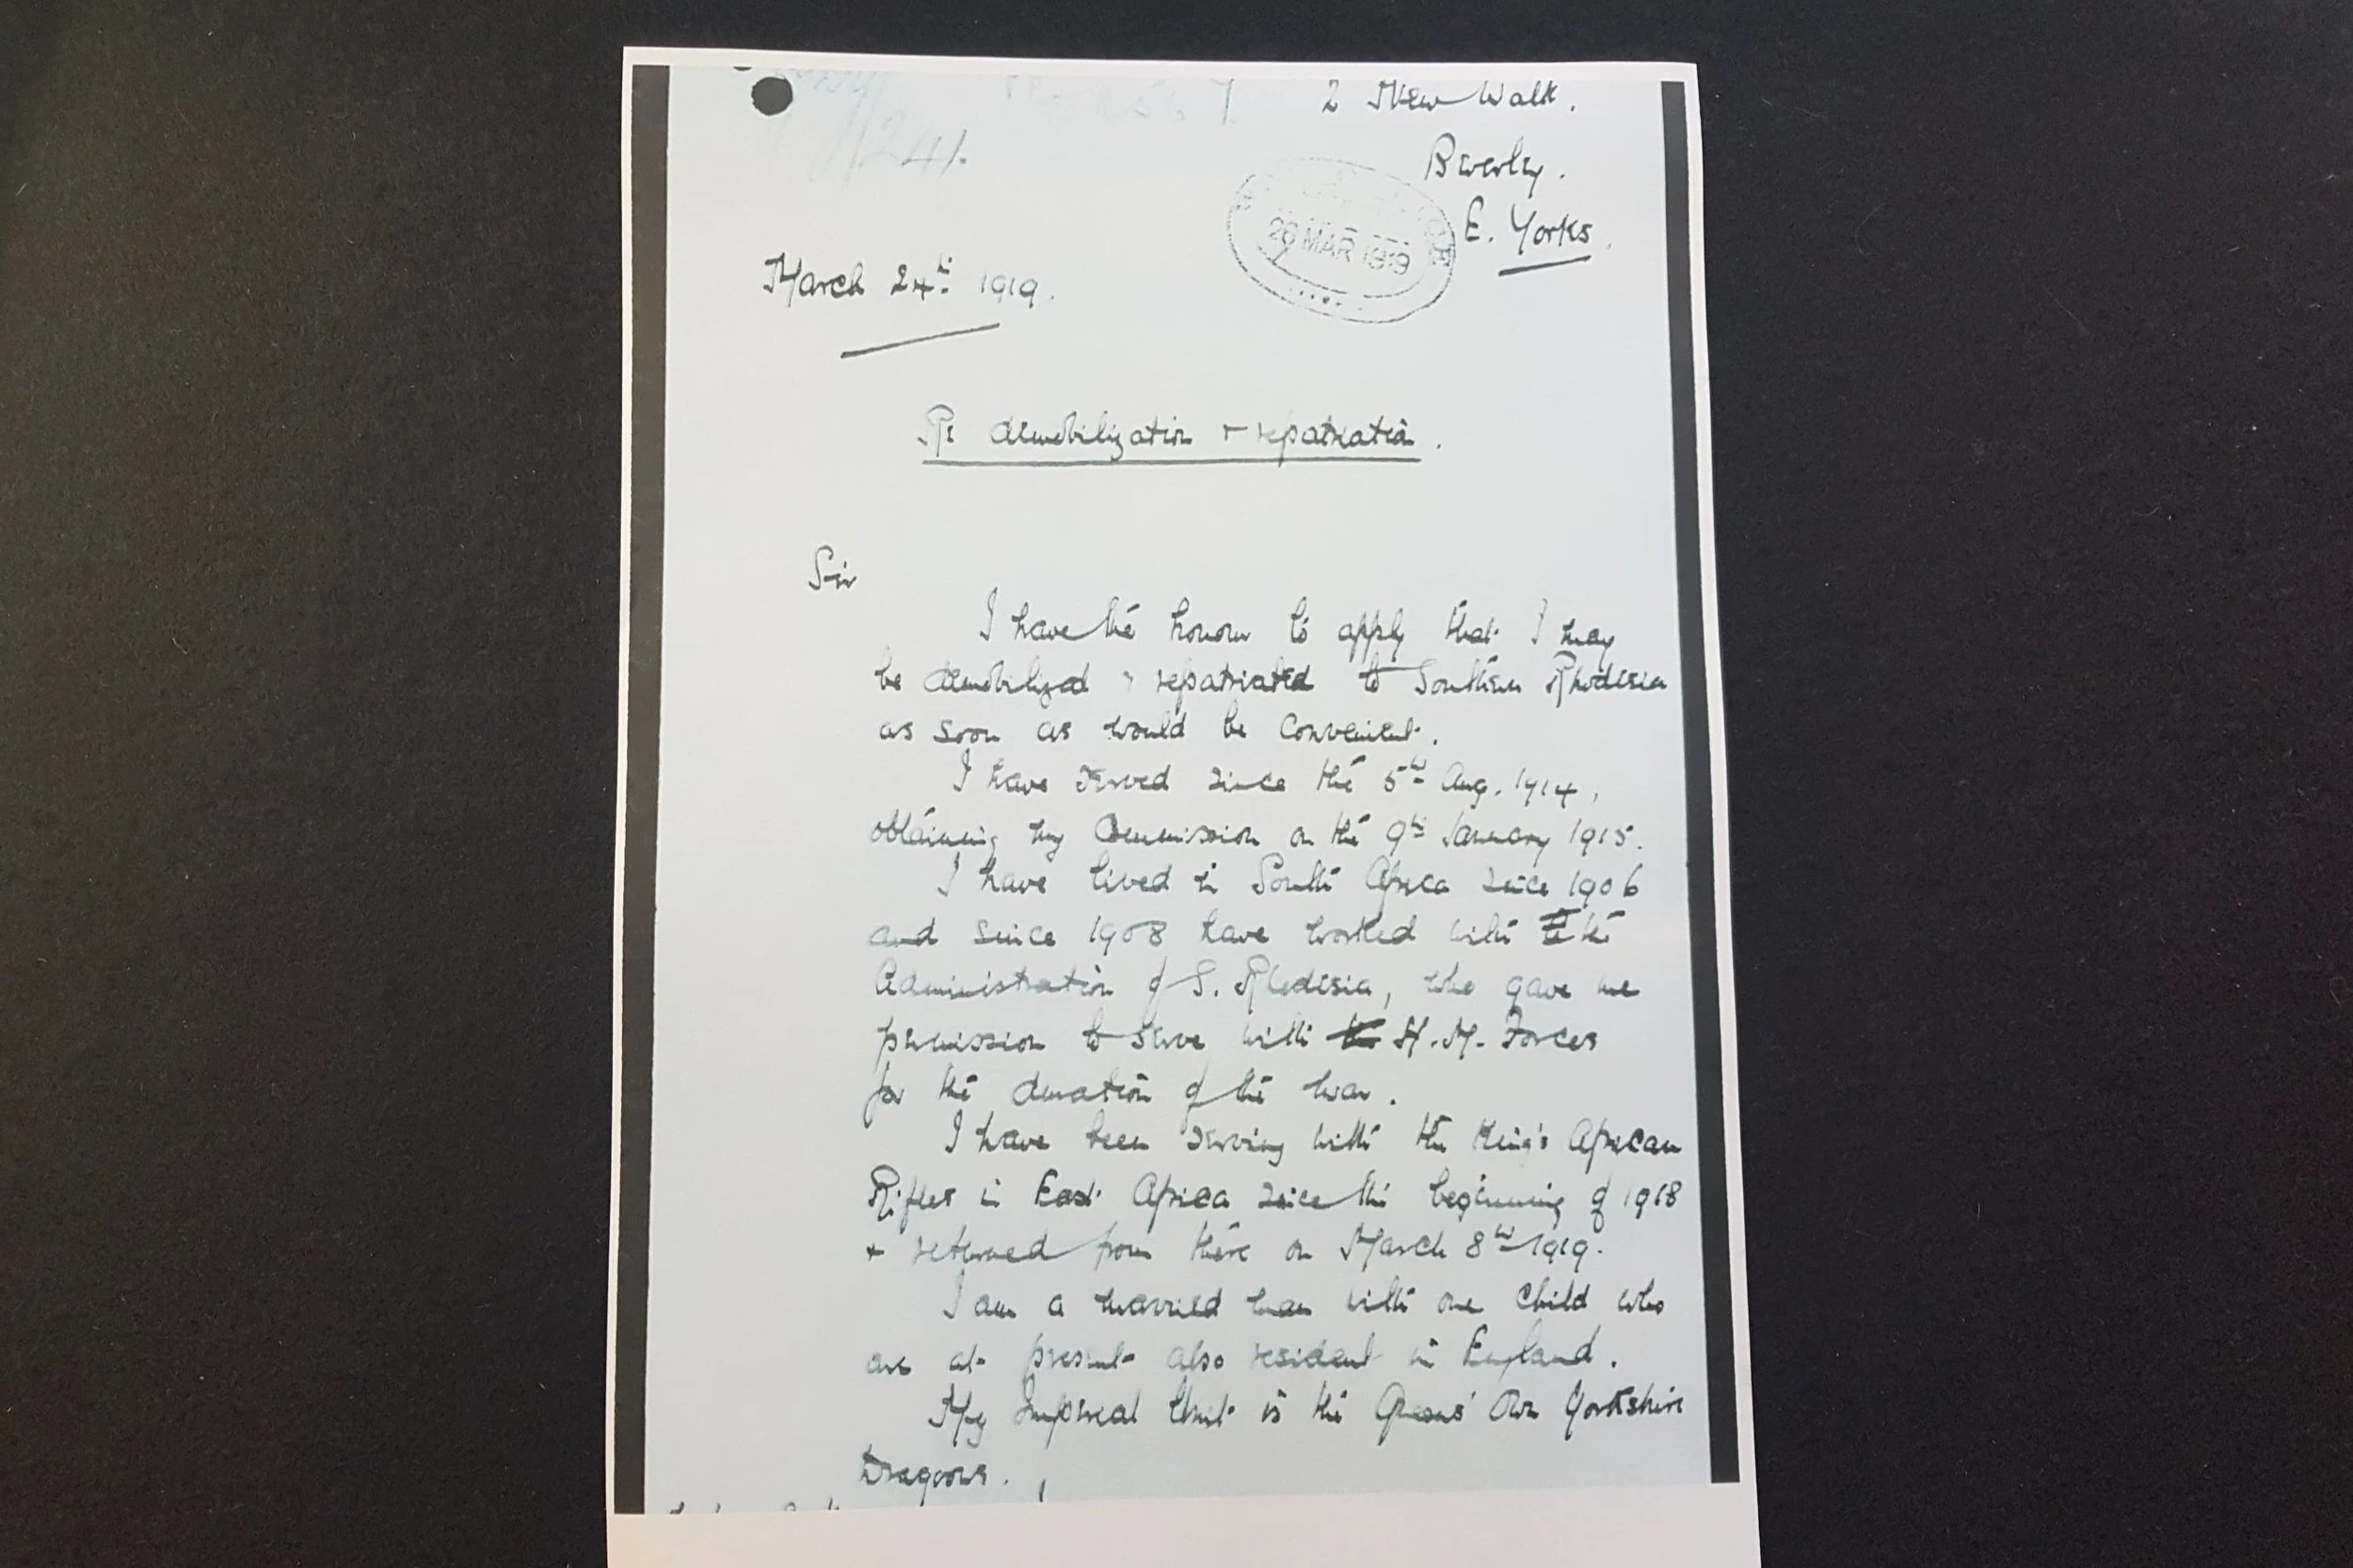 2 New Walk.
Beverley.
E. Yorks.
26 MAR 1919
March 24th 1919.
Re demobilization + repatriation.
Sir
I have the honour to apply that I may
be demobilized + repatriated to Southern Rhodesia
as soon as would be convenient.
I have served since the 5th Aug. 1914,
obtaining my Commission on the 9th January 1915.
I have lived in South Africa since 1906
and since 1908 have worked with the
Administration of S. Rhodesia, who gave me
permission to serve with H.M. Forces
for the duration of the war.
I have been serving with the King's African
Rifles in East Africa since the beginning of 1918
+ returned from there on March 8th 1919.
I am a married man with one child who
are at present also resident in England.
My Imperial Unit is the Queens' Own Yorkshire
Dragoons.